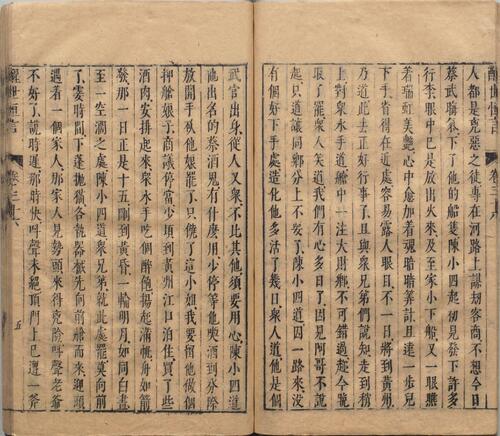 人都是兇惡之徒專在河路上謀劫客商不想今日
蔡武晦氣下了他的船隻陳小四起初見發下許多
行李眼中已是放出火來及至家小下船又一眼瞧
着瑞虹美艷心中愈加着魂暗暗筭計且遠一步兒
下手省得在近處容易露人眼目不一日將到黃州
乃道此去正好行事了且與衆兄弟們說知走到稍
上對衆水手道艙中一注大財鄉不可錯過趂今晚
取了罷衆人笑道我們有心多日了因見阿哥不說
起只道讓同鄉分上不要了陳小四道因一路來沒
有個好下手處造化他多活了幾日衆人道他是個
武官出身從人又衆不比其他須要用心陳小四道
他出名的蔡酒鬼有什麼用少停等他喫酒到分際
放開手砍他娘罷了只饒了這小姐我要留他做個
押艙娘子商議停當少頃到黃州江口泊住買了些
酒肉安排起來衆水手吃個醉飽揚起滿帆舟如箭
發那一日正是十五剛到黃昏一輪明月如同白晝
至一空濶之處陳小四道衆兄弟就此處罷莫向前
了霎時間下蓬拋錨各執器械先向前艙而來迎頭
遇着一個家人那家人見勢頭來得兇險叫聲老爺
不好了說時遲那時快叫聲未絕頂門上已遭一斧
醒世恒言 卷三十六 五